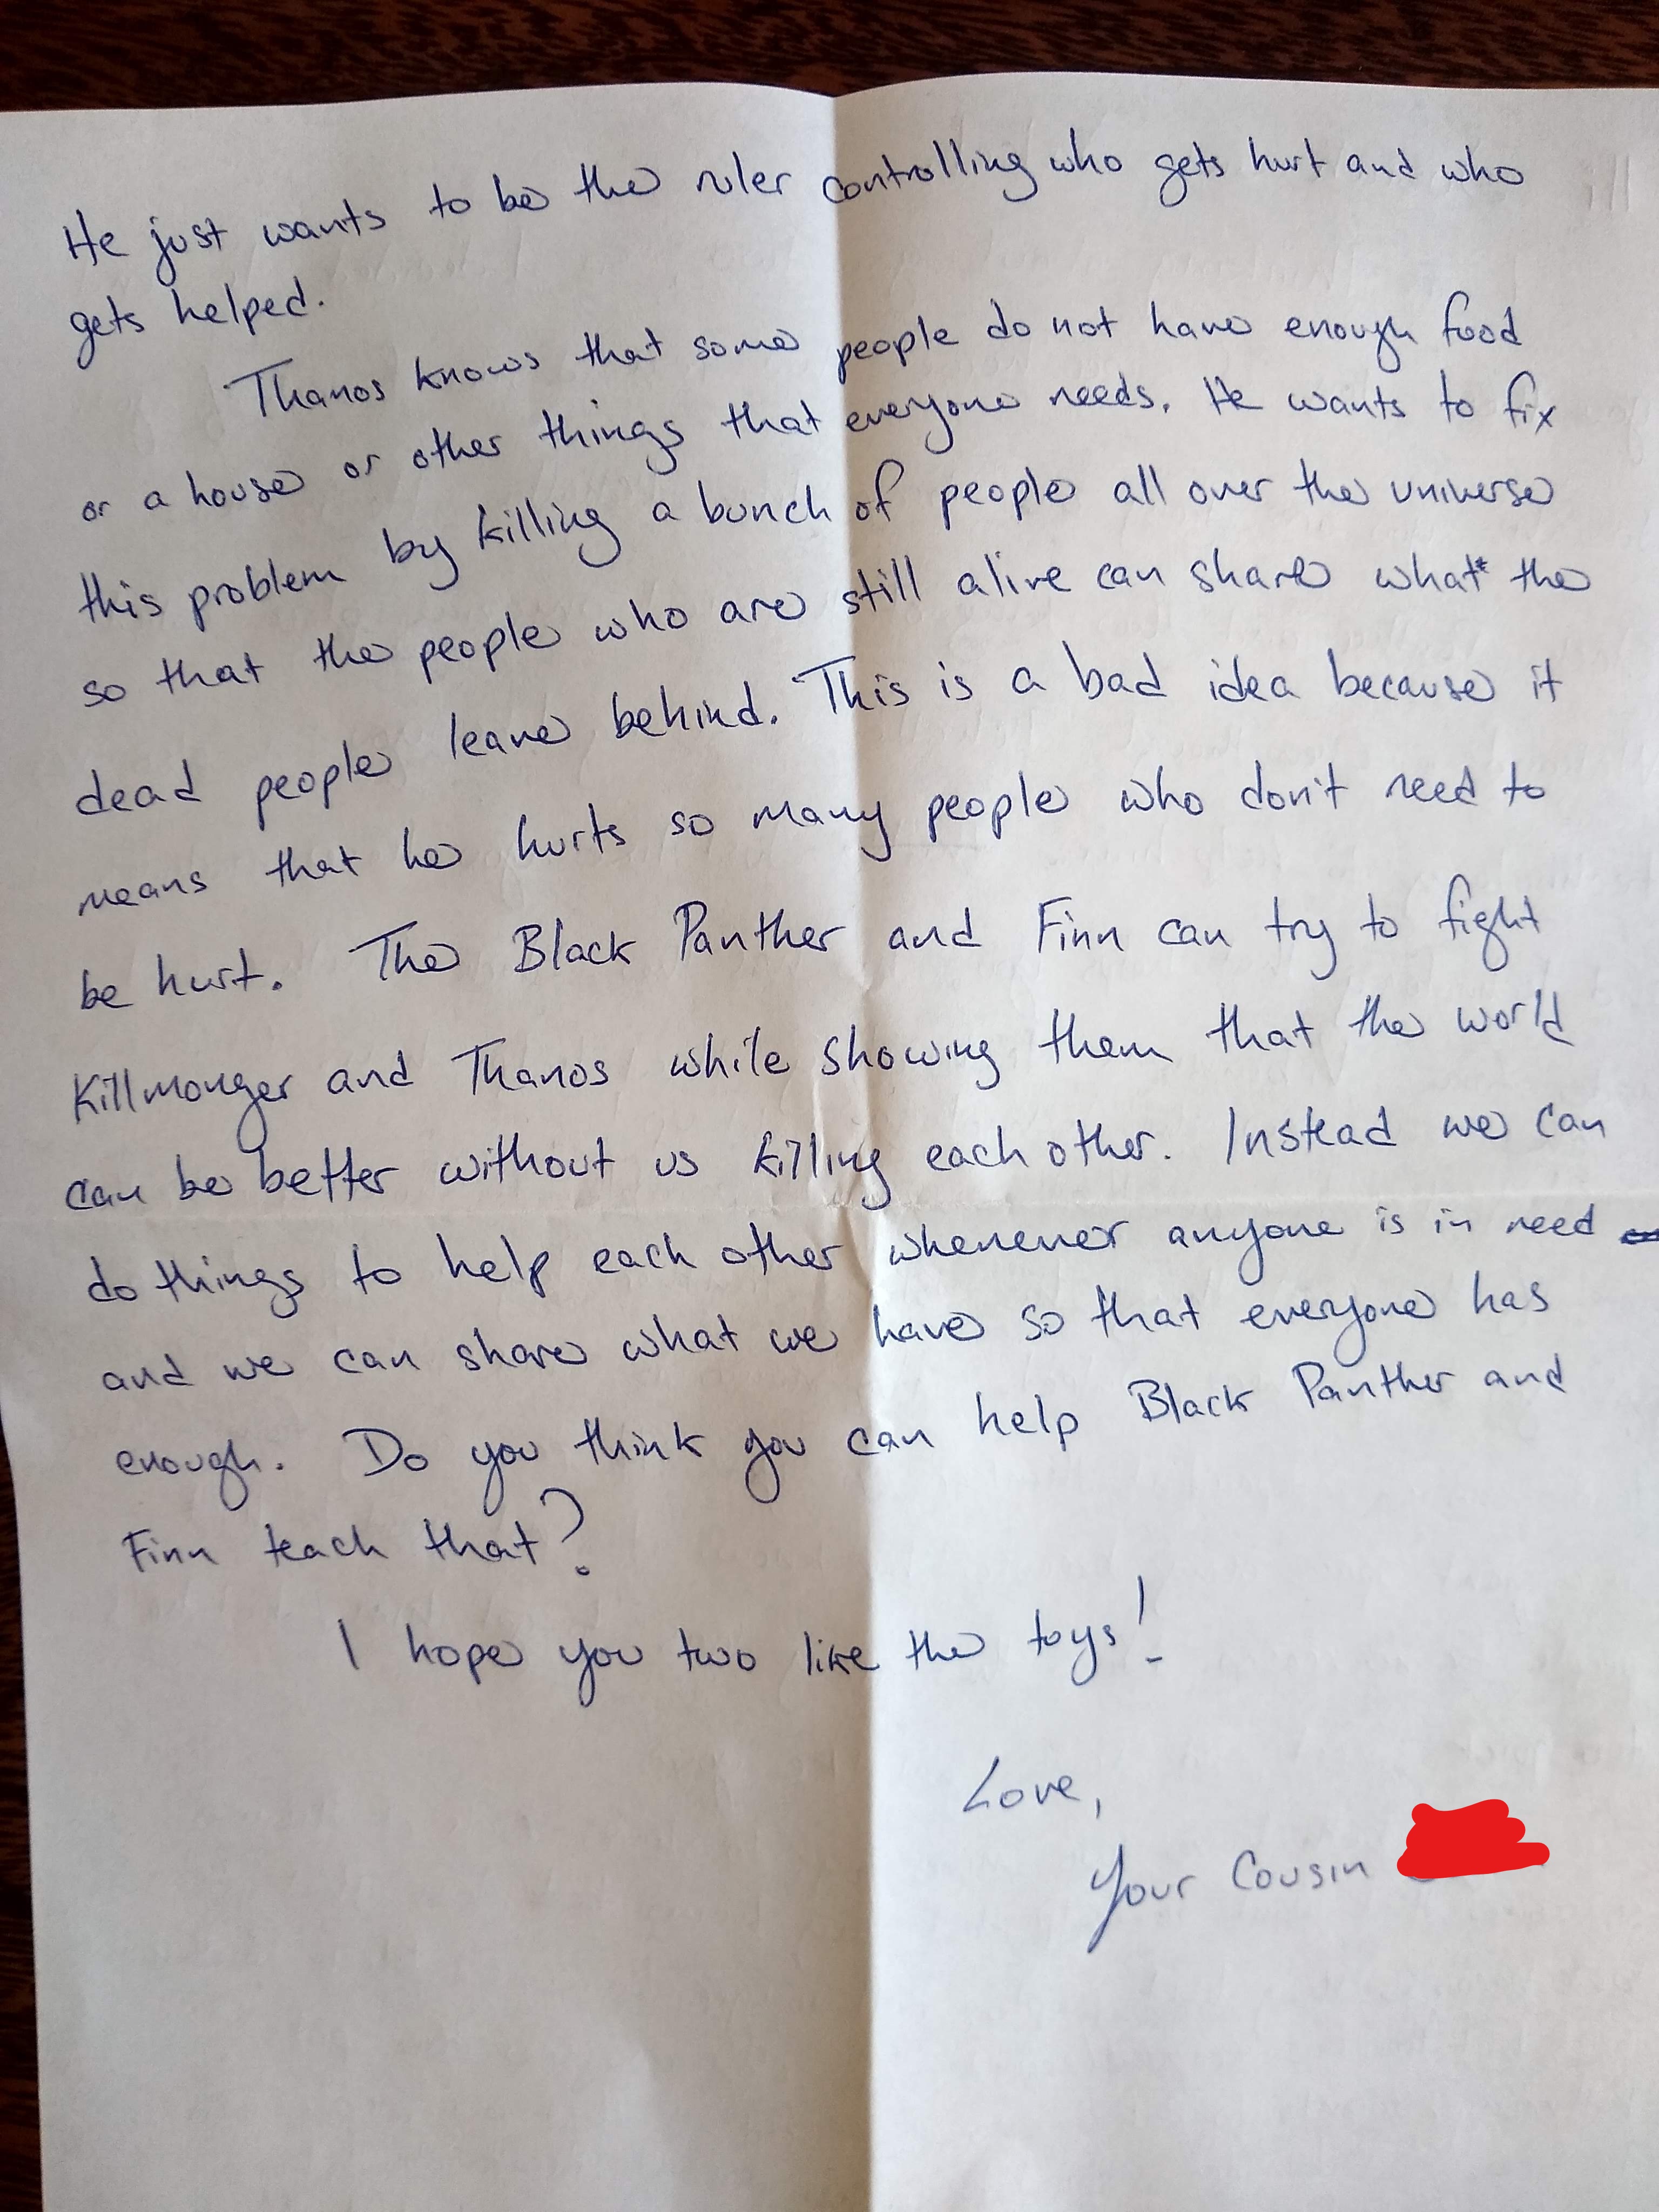 He just wants to be the ruler controlling who gets hurt and who
gets helped.
Thanos knows that some people do not have enough food
or a house or other things that everyone needs. He wants to fix
this problem by killing a bunch of people all over the universe
so that the people who are still alive can share what the
dead people leave behind. This is a bad idea because it
means that he hurts so many people who don't need to
be hurt. The Black Panther and Finn can try to fight
Killmonger and Thanos while showing them that the world
can be better without us killing each other. Instead we can
do things to help each other whenever anyone is in need
and we can share what we have so that everyone has
enough. Do you think you can help Black Panther and
Finn teach that?
I hope you two like the toys!
Love,
Your Cousin